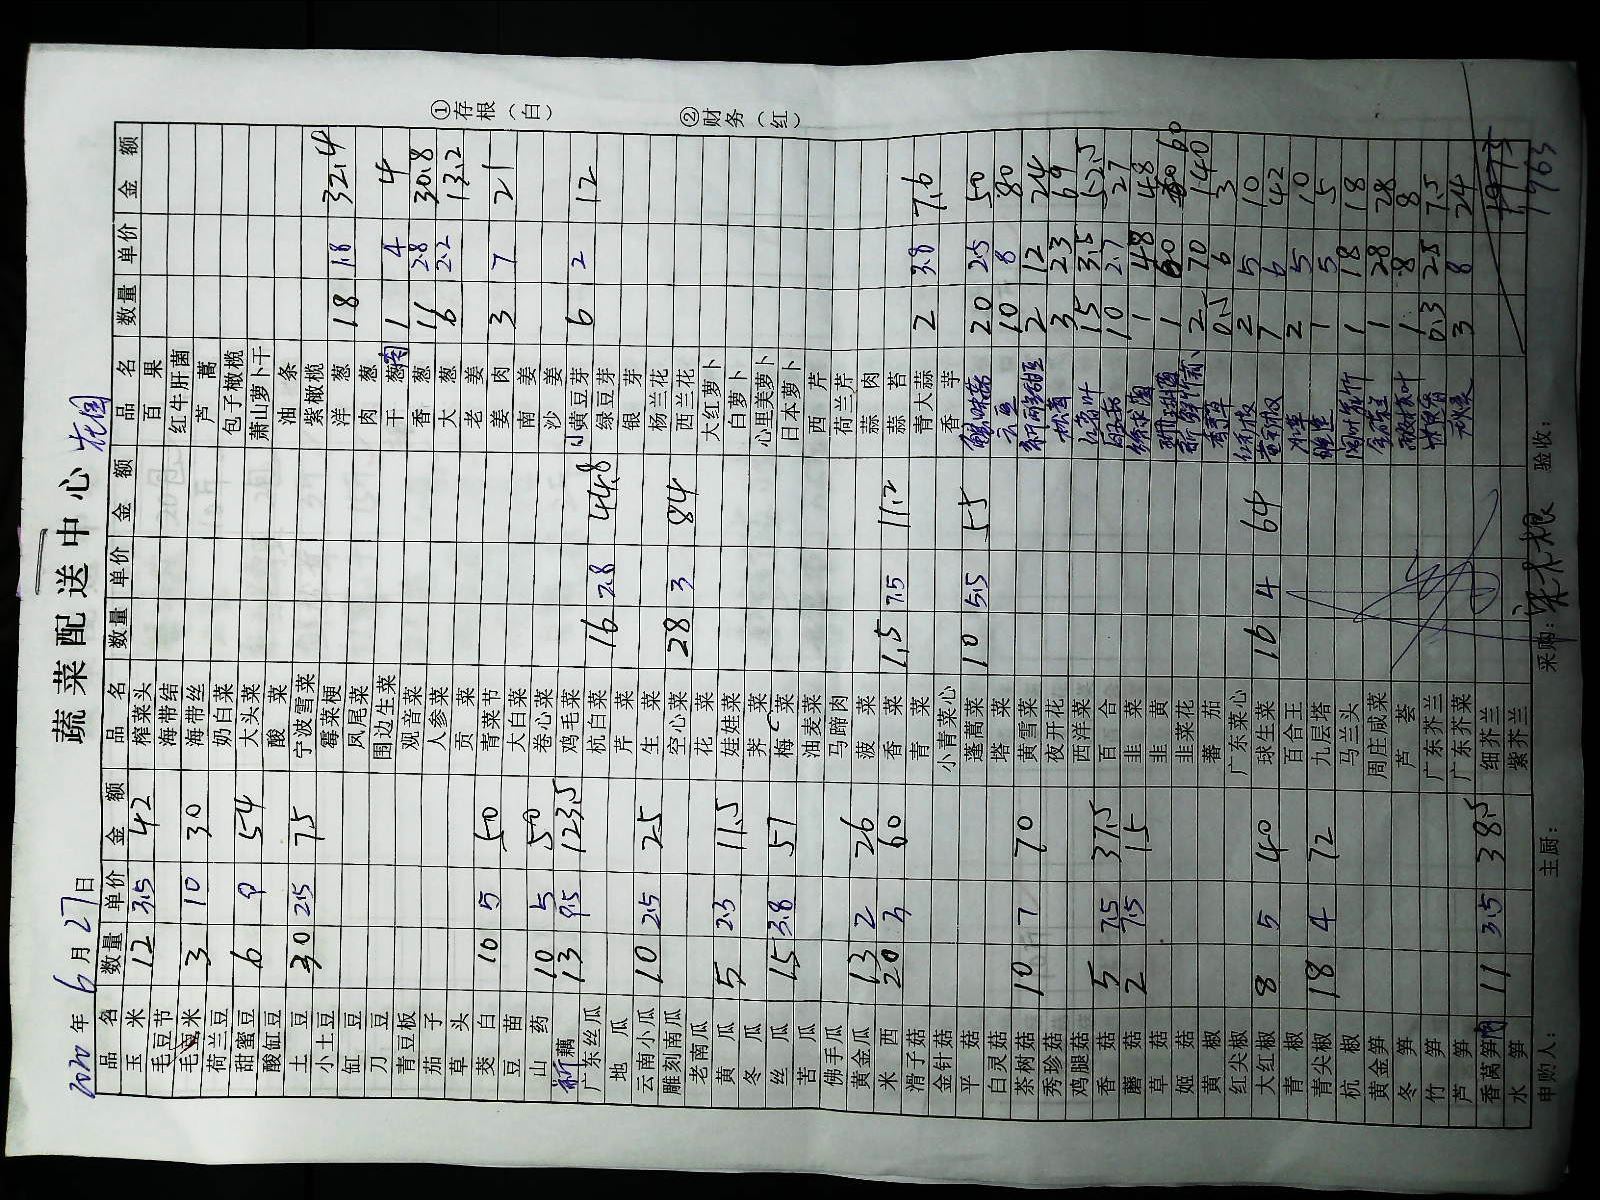 蔬菜配送中心
2020年6月27日
品名 数量 单价 金额 品名 数量 单价 金额 品名 数量 单价 金额
玉米 12 3.5 42 榨菜头 百果
毛豆节 海带结 红牛肝菌
毛豆米 3 10 30 海带丝 芦蒿
荷兰豆 奶白菜 包子橄榄
甜蜜豆 6 9 54 大头菜 萧山萝卜干
酸缸豆 酸菜 油条
土豆 30 2.5 75 宁波雪菜 紫橄榄
小土豆 霉菜梗 洋葱 18 1.8 32.4
缸豆 凤尾菜 肉葱
刀豆 围边生菜 干葱肉 1 4 4
青豆板 观音菜 香葱 11 2.8 30.8
茄子 人参菜 大葱 6 2.2 13.2
草头 贡菜 老姜
茭白 10 5 50 青菜节 姜肉 3 7 21
豆苗 大白菜 南姜
山药 10 5 50 卷心菜 沙姜
新藕 13 9.5 123.5 鸡毛菜 小黄豆芽 6 2 12
广东丝瓜 杭白菜 16 2.8 44.8 绿豆芽
地瓜 芹菜 银芽
云南小瓜 10 2.5 25 生菜 杨兰花
雕刻南瓜 空心菜 28 3 84 西兰花
老南瓜 花菜 大红萝卜
黄瓜 5 2.3 11.5 娃娃菜 白萝卜
冬瓜 荠菜 心里美萝卜
丝瓜 15 3.8 57 梅菜 日本萝卜
苦瓜 油麦菜 西芹
佛手瓜 马蹄肉 荷兰芹
黄金瓜 13 2 26 菠菜 蒜肉
米西 20 3 60 香菜 1.5 7.5 11.2 蒜苔
滑子菇 青菜 青大蒜 2 3.8 7.6
金针菇 小青菜心 香芋
平菇 蓬蒿菜 10 5.5 55 20 2.5 50
白灵菇 塔菜 10 8 80
茶树菇 10 7 70 黄雪菜 2 12 24
秀珍菇 夜开花 松茸 3 23 69
鸡腿菇 西洋菜 15 3.5 52.5
香菇 5 7.5 37.5 百合 10 2.7 27
蘑菇 2 7.5 15 韭菜 1 48 48
草菇 韭黄 1 60 60
姬菇 韭菜花 2 70 140
黄椒 蕃茄 0.5 6 3
红尖椒 广东菜心 2 5 10
大红椒 8 5 40 球生菜 16 4 64 7 6 42
青椒 百合王 2 5 10
青尖椒 18 4 72 九层塔 1 5 5
杭椒 马兰头 1 18 18
黄金笋 周庄咸菜 1 28 28
冬笋 芦荟 1 8 8
竹笋 广东芥兰 0.3 25 7.5
芦笋 广东芥菜 3 8 24
香莴笋 11 3.5 38.5 细芥兰 1973
水笋 紫芥兰 1963
申购人： 主厨： 采购： 验收：
①存根（白）
②财务（红）